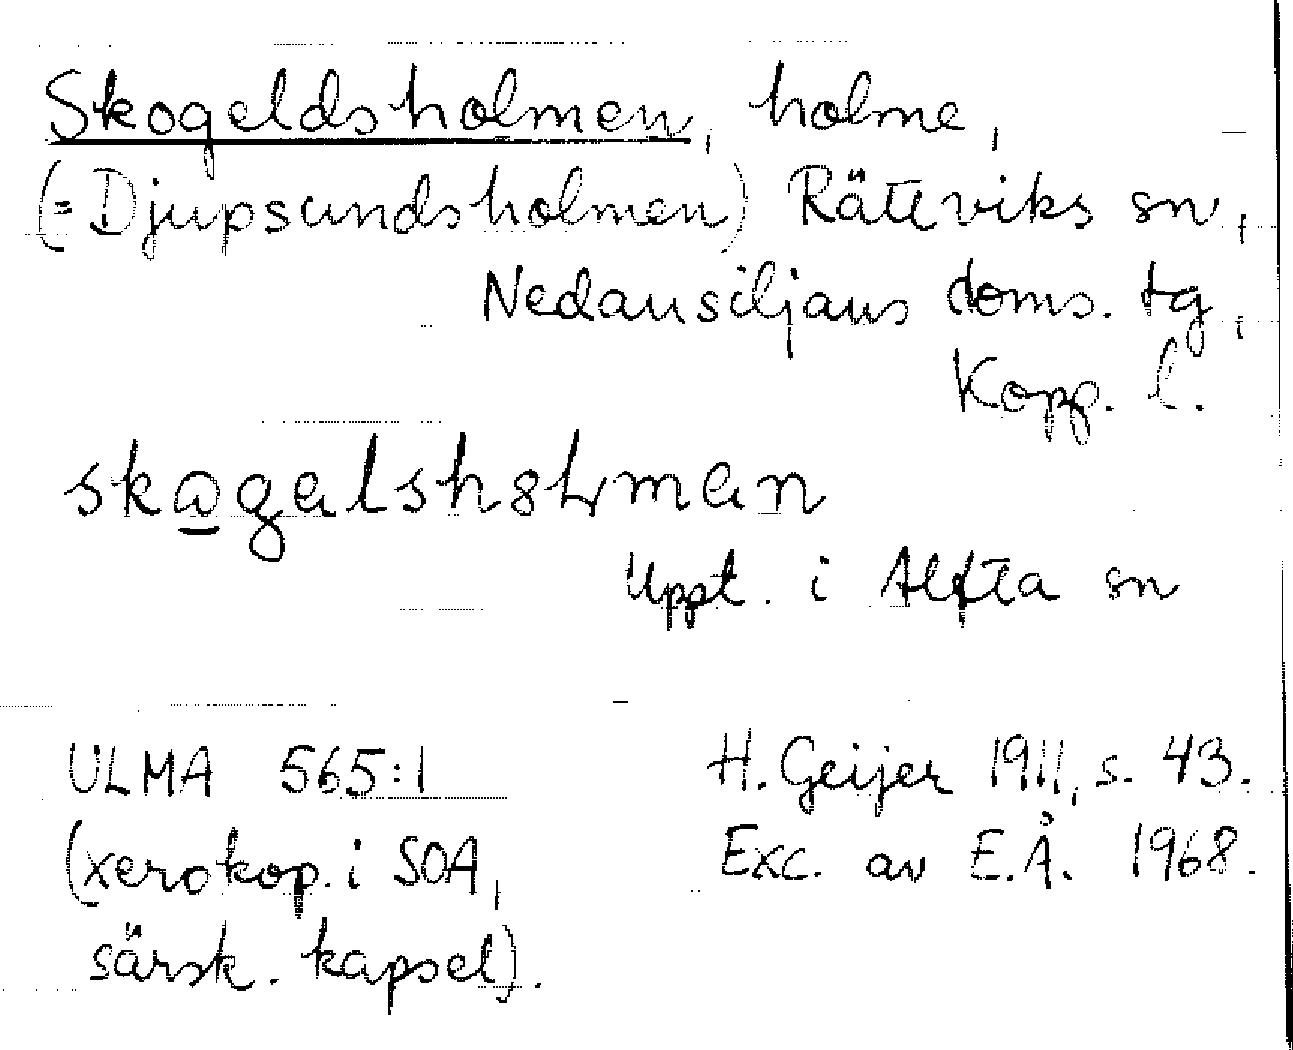 Skogeldsholmen, holme,
(= Djupsundsholmen) Rättviks sn,
Nedansiljans doms. tg,
Kopp. l.
Uppt. i Alfta sn
ULMA 565:1
(xerokop. i SOA,
särsk. kapsel).
H. Geijer 1911, s. 43.
Exc. av E.Å. 1968.